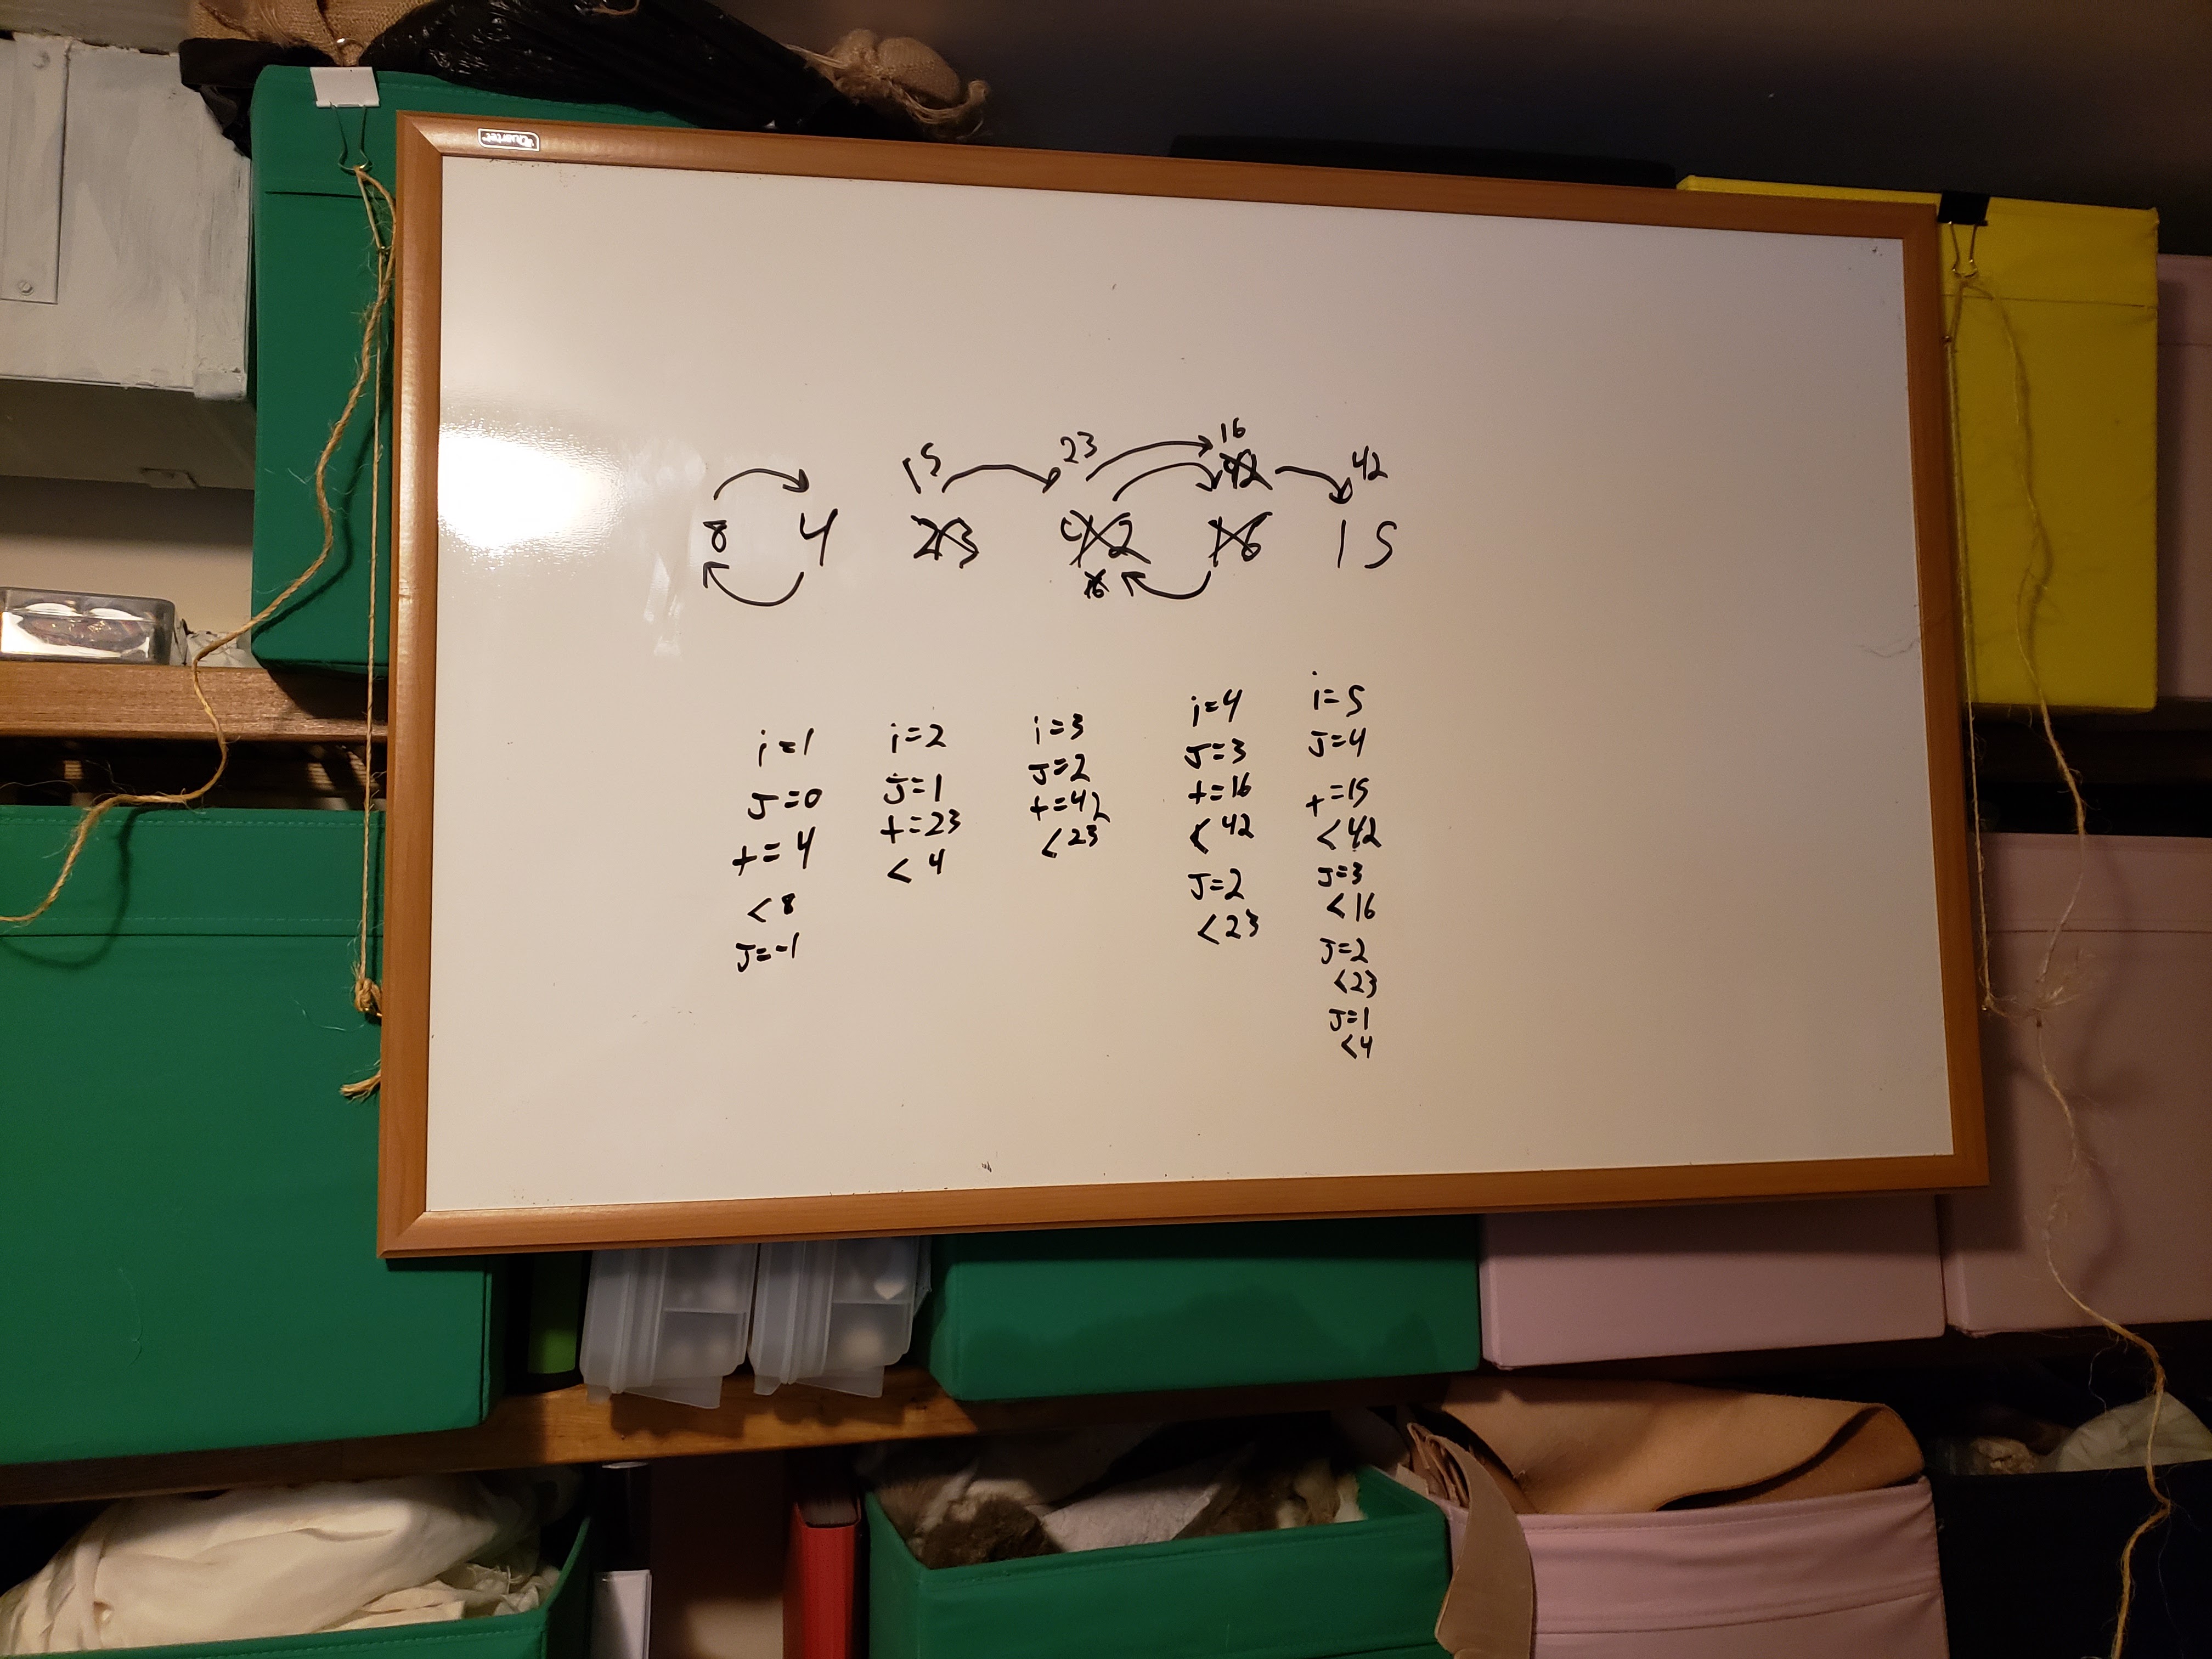 Quartet
15 23 16 42
42
8 4 23 42 16 15
16
i=1
J=0
t=4
<8
J=-1
i=2
J=1
t=23
<4
i=3
J=2
t=42
<23
i=4
J=3
t=16
<42
J=2
<23
i=5
J=4
t=15
<42
J=3
<16
J=2
<23
J=1
<4